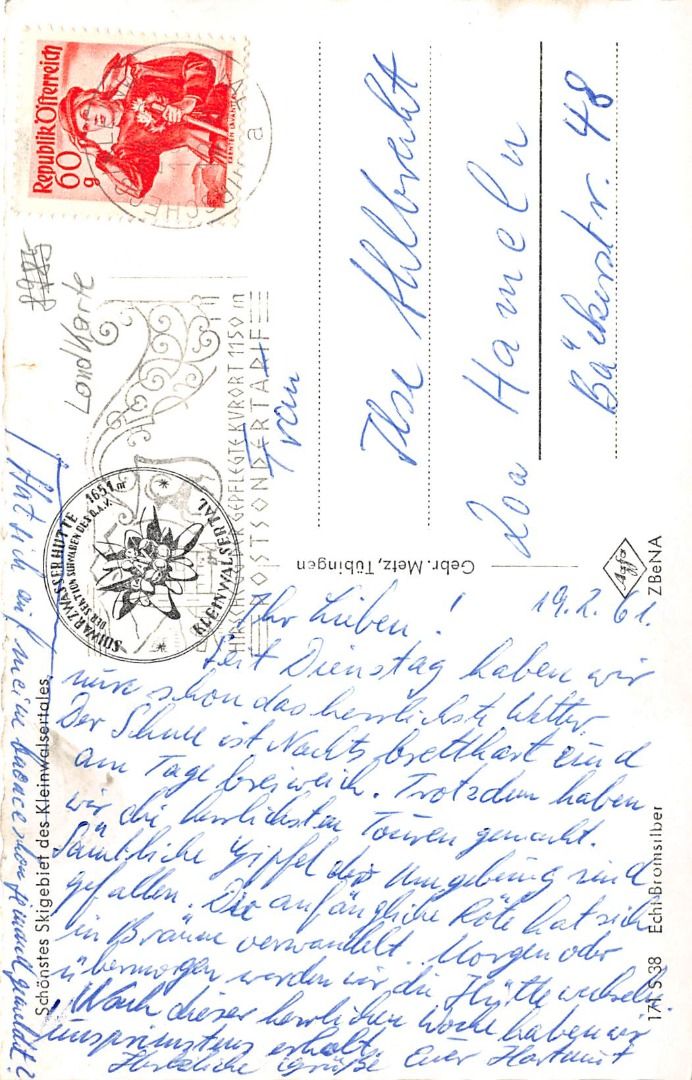 Republik Österreich
60
g
KÄRNTEN LAVANTTAL
Landkarte
HIRSCHEGG GEPFLEGTE KURORT 1150 m
POSTSONDERTARIF
SCHWARZWASSERHÜTTE 1651 m
DER SEKTION SCHWABEN DES D.A.V.
KLEINWALSERTAL
Ilse Ahlbrecht
20a Hameln
Bäckerstr. 48
Gebr. Metz, Tübingen
Agfa
ZBeNA
19.2.61.
Ihr Lieben!
Seit Dienstag haben wir
nun schon das herrlichste Wetter.
Der Schnee ist Nachts bretthart und
am Tage breiweich. Trotzdem haben
wir die herrlichsten Touren gemacht.
Sämtliche Gipfel der Umgebung sind
gefallen. Die anfängliche Röte hat sich
in Bräune verwandelt. Morgen oder
übermorgen werden wir die Hütte wechseln.
Nach dieser herrlichen Woche haben wir
uns prima erholt.
Herzliche Grüße Euer Hartmut
Hat sich auf meine schon jemand gemeldet?
Schönstes Skigebiet des Kleinwalsertales,
171 S 38 Echt Bromsilber